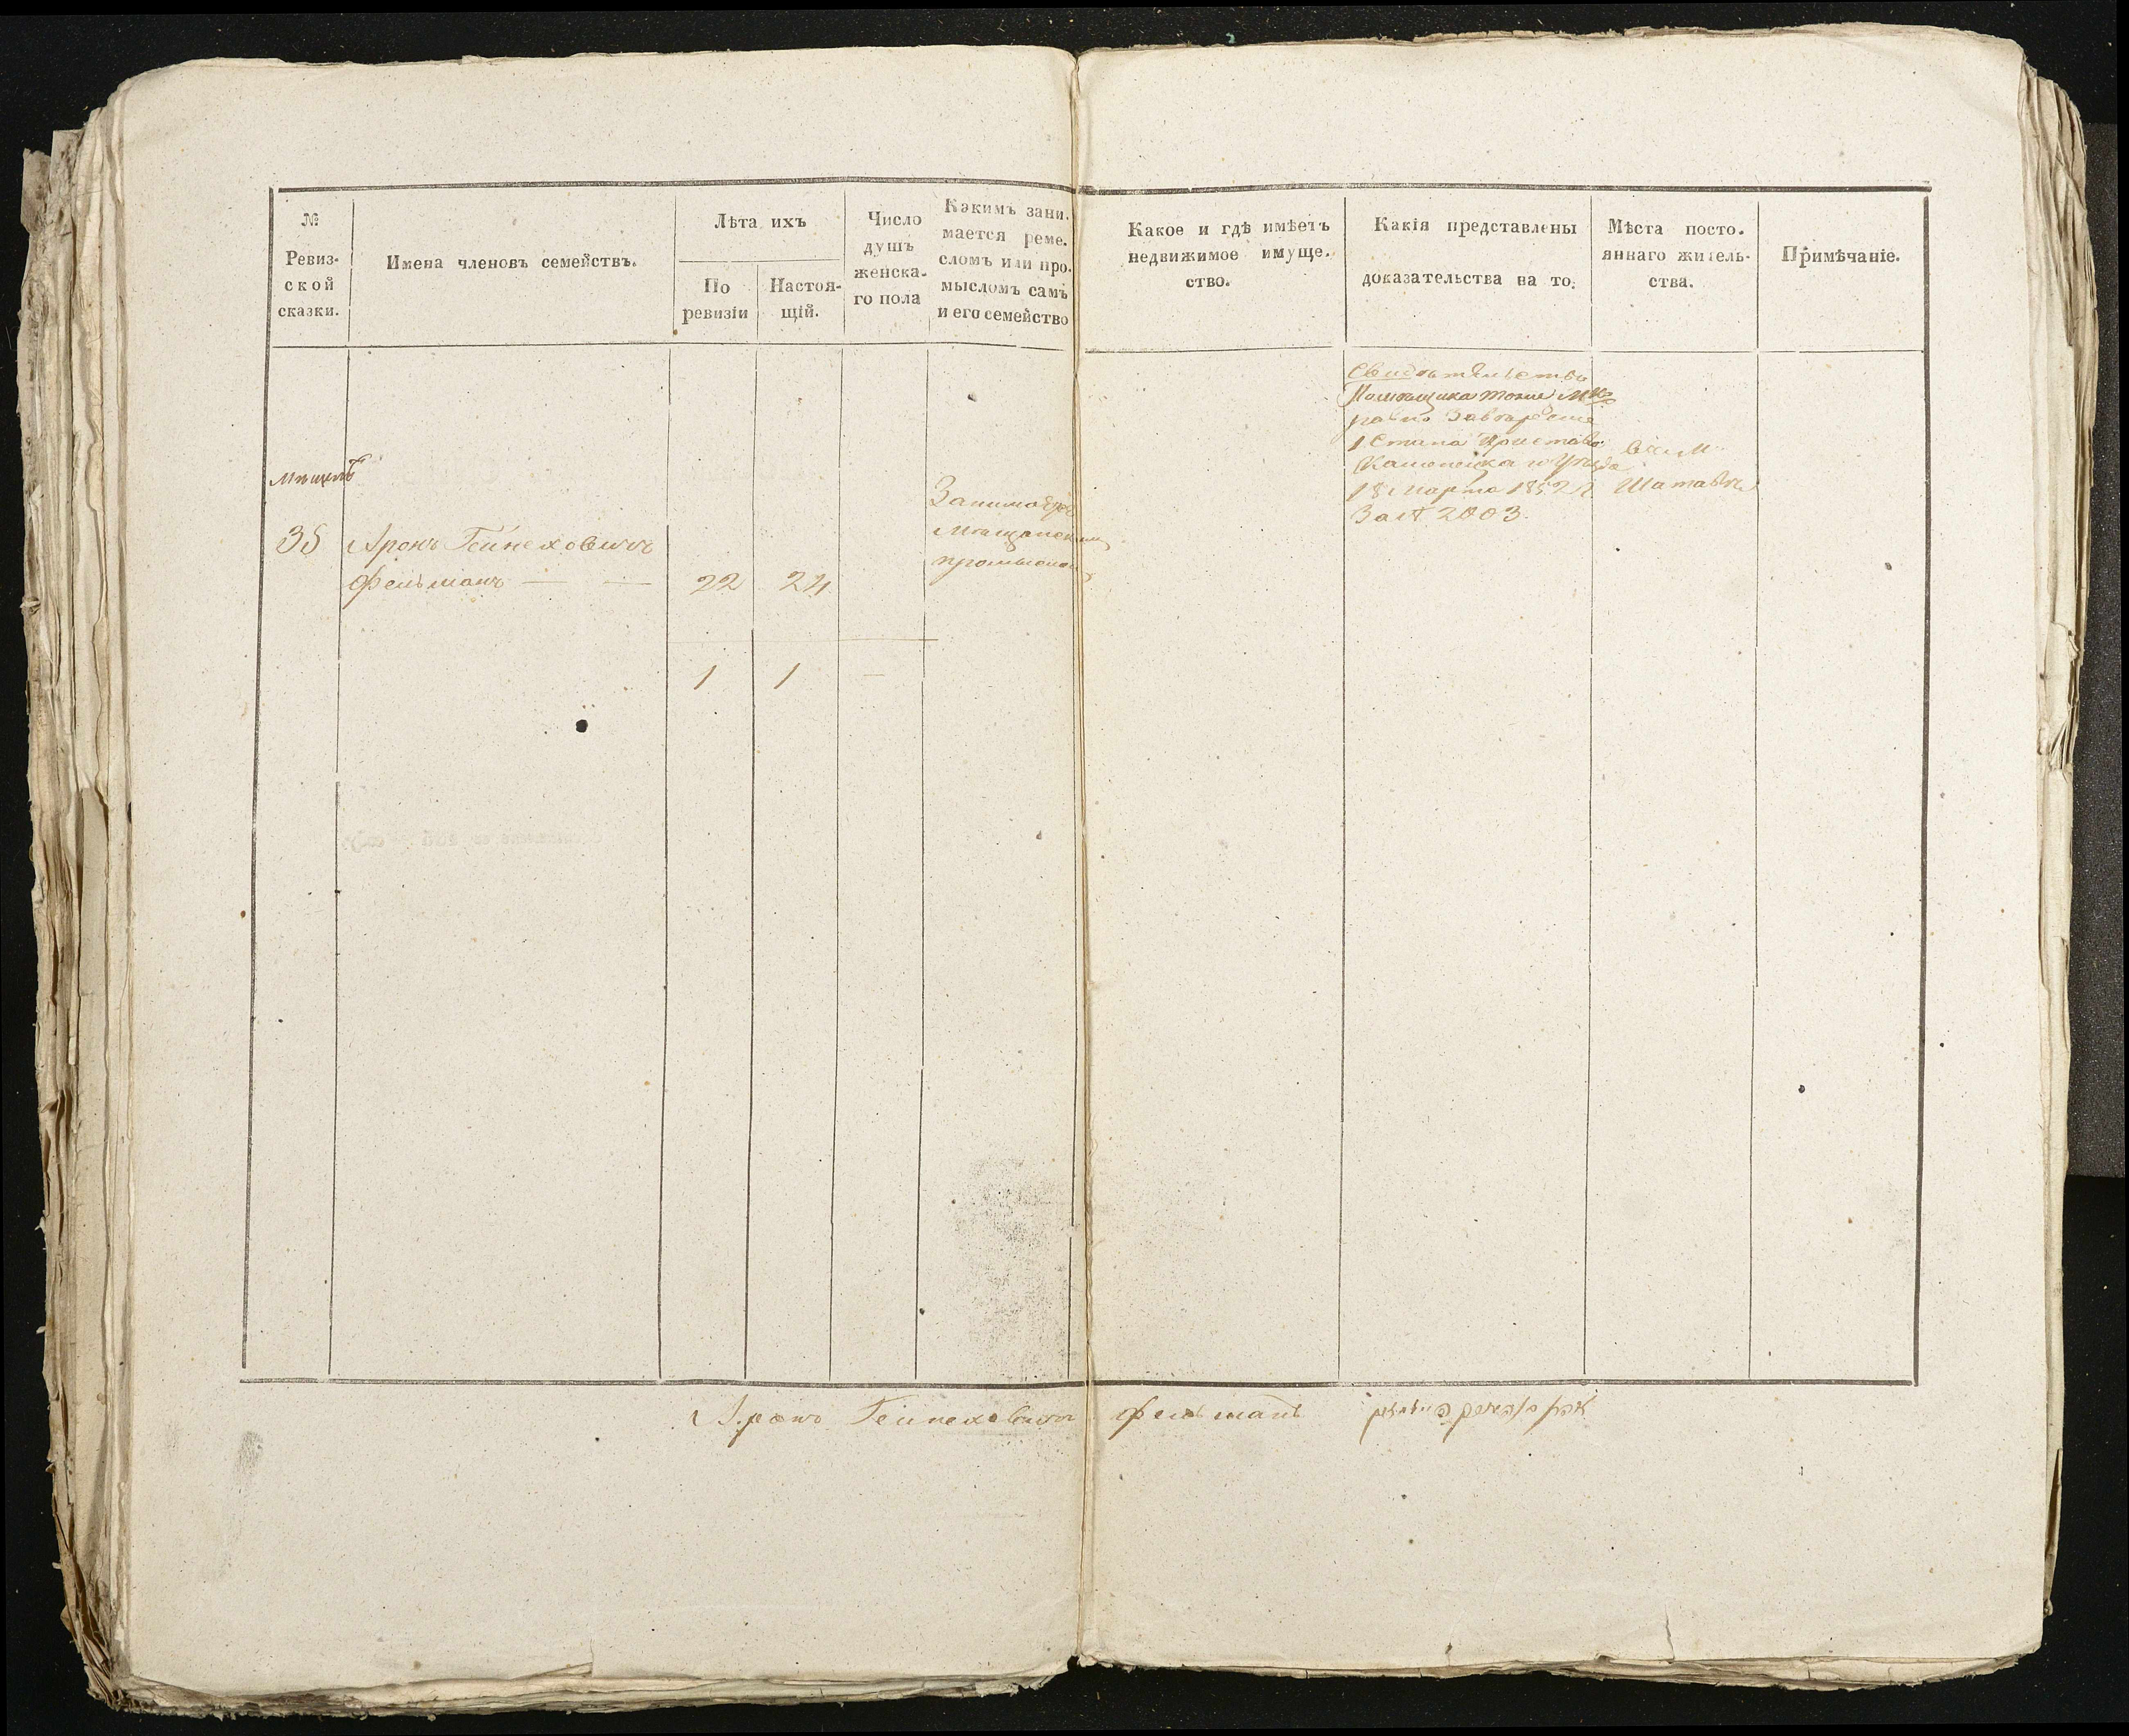 №
Ревиз-
ской
сказки.
Имена членовъ семействъ.
Лѣта ихъ
По
ревизіи
Настоя-
щій.
Число
душъ
женска-
го пола
Какимъ зани-
мается реме-
сломъ или про-
мысломъ самъ
и его семейство
Какое и гдѣ имѣетъ
недвижимое имуще-
ство.
Какія представлены
доказательства на то.
Мѣста посто-
яннаго житель-
ства.
Примѣчаніе.
35 Аронъ Гейнеховичъ
Фельманъ — — 22 24
1 1 —
Занимается
мѣщанскимъ
промысломъ
Свидѣтельство
Помѣщика
1 Стана Пристава
Каменецкаго Уѣзда
18 Марта 1852 г
За № 2003.
Шатавѣ
Аронъ Гейнеховичъ Фельманъ